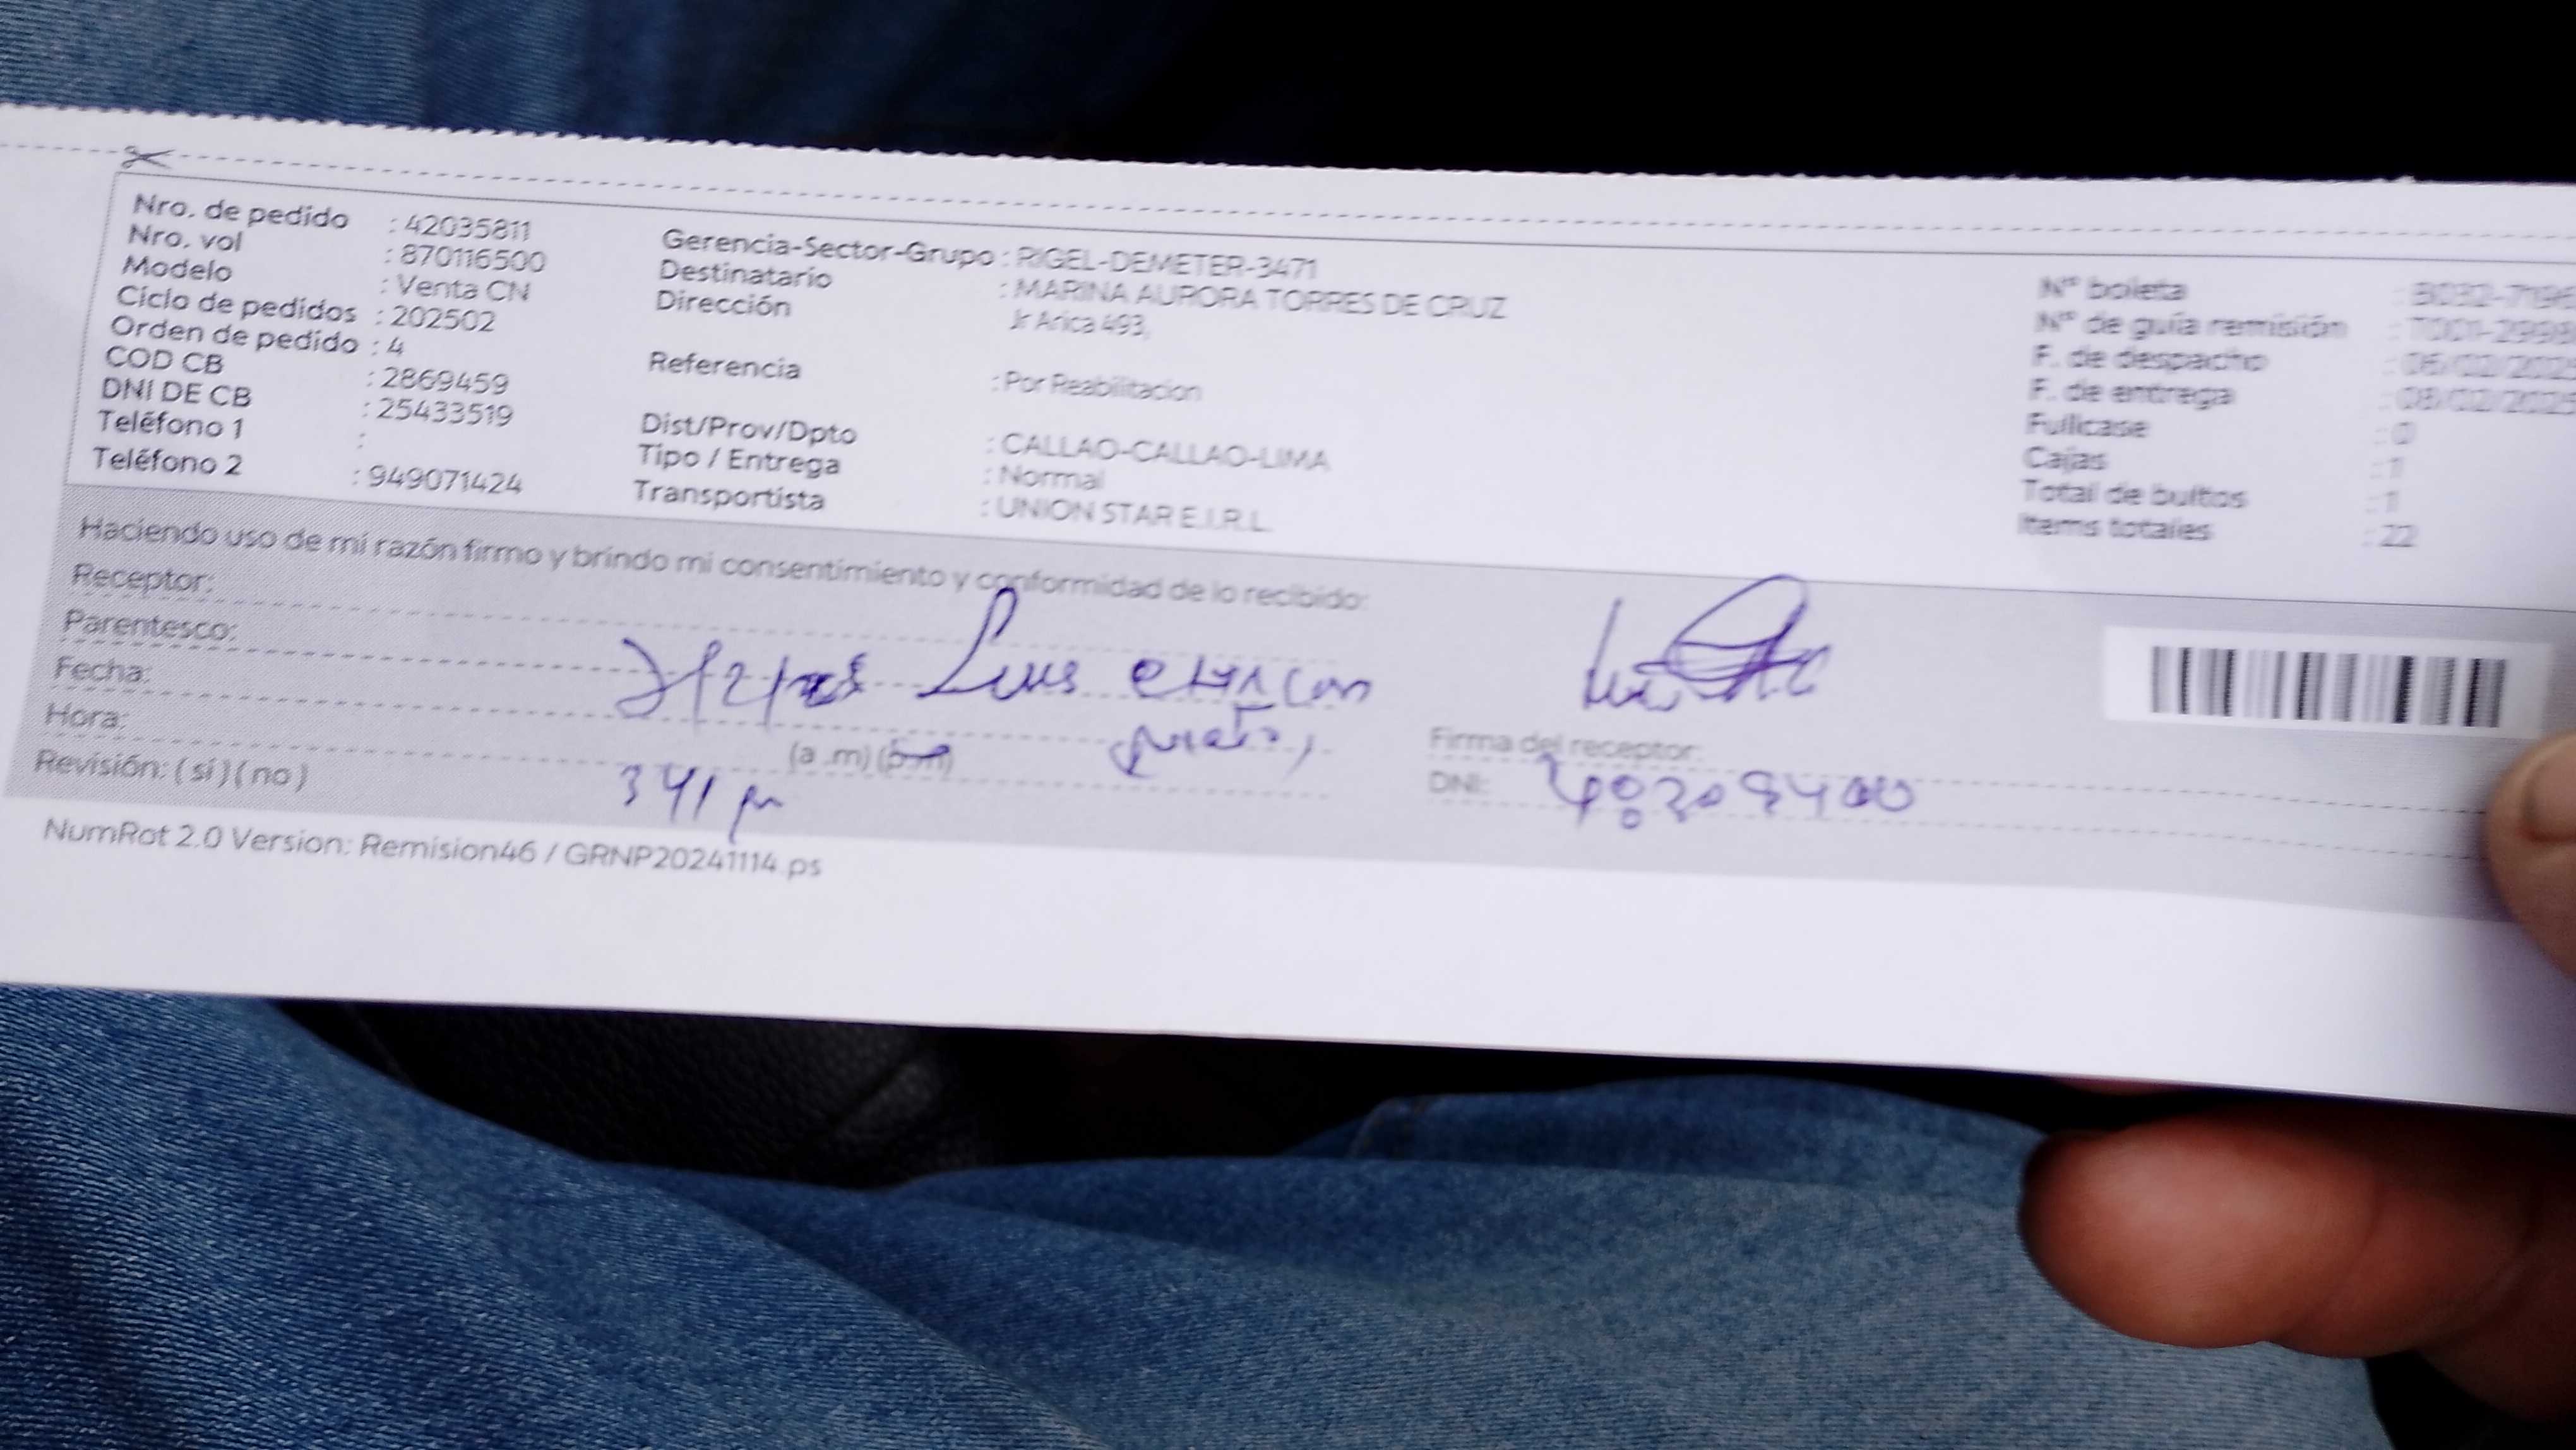 Nro. de pedido : 42035811
Nro. vol : 870116500
Modelo : Venta CN
Ciclo de pedidos : 202502
Orden de pedido : 4
COD CB : 2869459
DNI DE CB : 25433519
Teléfono 1 :
Teléfono 2 : 949071424
Gerencia-Sector-Grupo : RIGEL-DEMETER-3471
Destinatario : MARINA AURORA TORRES DE CRUZ
Dirección Jr Arica 493,
Referencia : Por Reabilitacion
Dist/Prov/Dpto : CALLAO-CALLAO-LIMA
Tipo / Entrega : Normal
Transportista : UNION STAR E.I.R.L.
N° boleta
N° de guía remisión
F. de despacho : 06/02/2025
F. de entrega : 08/02/2025
Fullcase : 0
Cajas : 1
Total de bultos : 1
Items totales : 22
Haciendo uso de mi razón firmo y brindo mi consentimiento y conformidad de lo recibido:
Receptor:
Parentesco:
Luis
Fecha:
Hora: (a .m) (p.m)
Revisión: ( sí ) ( no ) 341 pm
Firma del receptor:
DNI:
NumRot 2.0 Version: Remision46 / GRNP20241114.ps